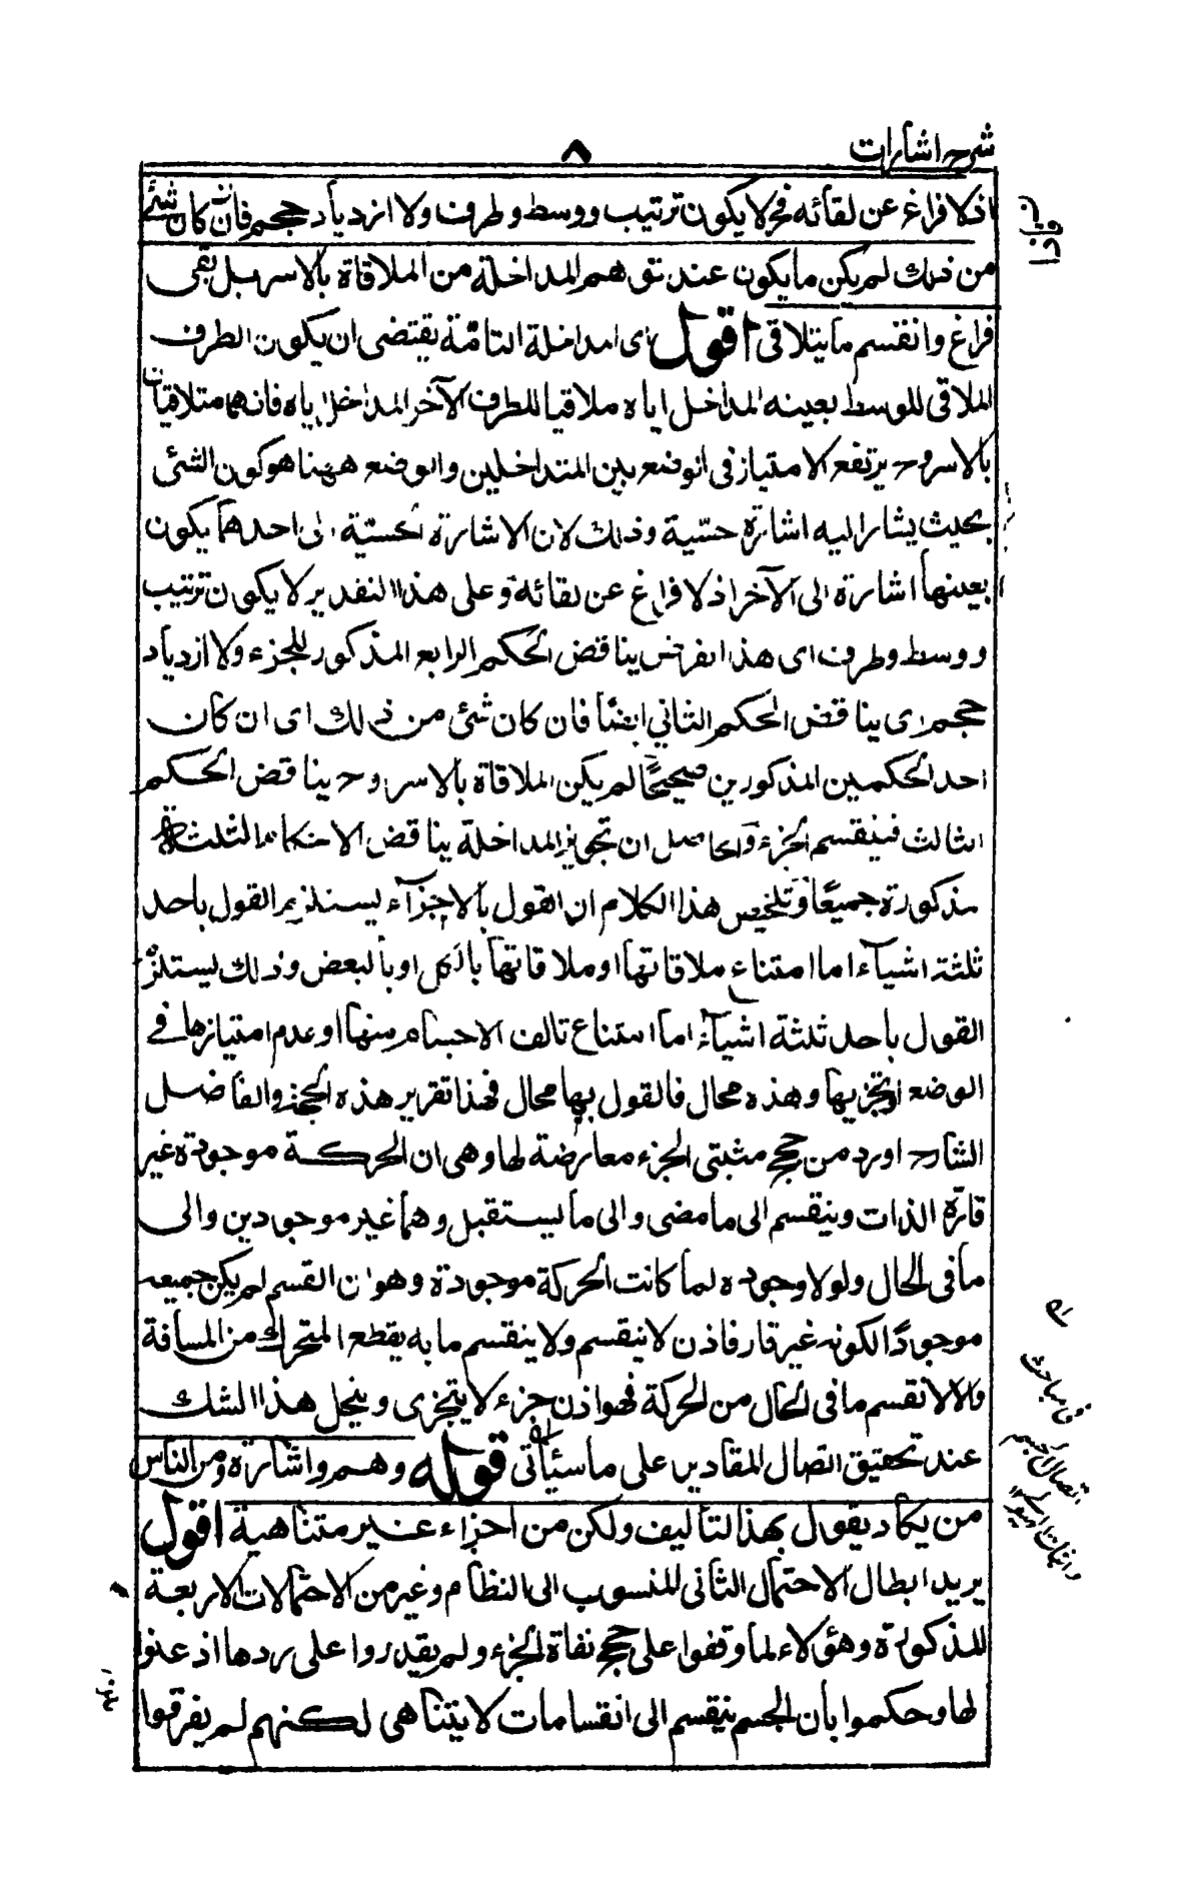 شرح اشارات
٨
اذ لا فراغ عن لقائه فح لا يكون ترتيب ووسط وطرف ولا ازدياد حجم فان كان شئ
من ذلك لم يكن ما يكون عند توهم المداخلة من الملاقاة بالاسر بل بقى
فراغ وانقسم ما يتلاقى اقول اى المداخلة التامة يقتضى ان يكون الطرف
الملاقى للوسط بعينه المداخل اياه ملاقيا للطرف الآخر المداخل اياه فانهما متلاقيان
بالاسر وح يرتفع الامتياز فى الوضع بين المتداخلين والوضع ههنا هو كون الشئ
بحيث يشار اليه اشارة حسّية وذلك لان الاشارة الحسّية الى احدهما يكون
بعينها اشارة الى الآخر اذ لا فراغ عن لقائه وعلى هذا التقدير لا يكون ترتيب
ووسط وطرف اى هذا الفرض يناقض الحكم الرابع المذكور للجزء ولا ازدياد
حجم اى يناقض الحكم الثانى ايضًا فان كان شئ من ذلك اى ان كان
احد الحكمين المذكورين صحيحًا لم يكن الملاقاة بالاسر وح يناقض الحكم
الثالث فينقسم الجزء والحاصل ان تجويز المداخلة يناقض الاحكام الثلثة
مذكورة جميعًا وتلخيص هذا الكلام ان القول بالاجزآء يستلزم القول باحد
ثلثة اشيآء اما امتناع ملاقاتها او ملاقاتها بالكل او بالبعض وذلك يستلزم
القول باحد ثلثة اشيآء اما امتناع تالف الاجسام منها او عدم امتيازها فے
الوضع او تجزيها وهذه محال فالقول بها محال فهذا تقرير هذه الحجة والفاضل
الشارح اورد من حجج مثبتى الجزء معارضة لها وهى ان الحركة موجودة غير
قارّة الذات وينقسم الى ما مضى والى ما يستقبل وهما غير موجودين والى
ما فى الحال ولولا وجوده لما كانت الحركة موجودة وهو ان القسم لم يكن جميعه
موجودًا لكونه غير قار فاذن لا ينقسم ولا ينقسم ما به يقطع المتحرك من المسافة
والا لانقسم ما فى الحال من الحركة فهو اذن جزء لا يتجزى وينحل هذا الشك
عند تحقيق اتصال المقادير على ما سيأتى قوله وهم واشارة ومن الناس
من يكاد يقول بهذا التأليف ولكن من اجزاء غير متناهية اقول
يريد ابطال الاحتمال الثانى المنسوب الى النظام وغير من الاحتمالات الاربعة
المذكورة وهؤلاء لما وقفوا على حجج نفاة الجزء ولم يقدروا على ردها اذعنوا
لها وحكموا بأن الجسم ينقسم الى انقسامات لا يتناهى لكنهم لم يفرقوا
فى مباحث
اتصال الجسم
واثبات الهيولى